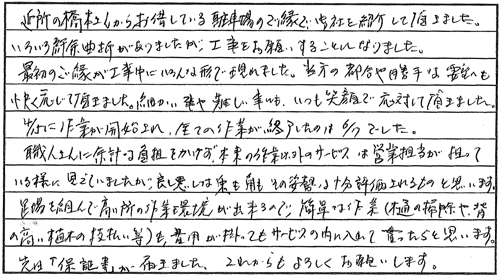 近所の橋本さんからお借している駐車場のご縁で御社を紹介して頂きました。
いろいろ紆余曲折がありましたが、工事をお願いすることになりました。
最初のご縁が工事中にいろんな形で現れました。当方の都合や勝手な電話へも
快く応じて頂きました。細かい事や難しい事にも、いつも笑顔で応対して頂きました。
4/15に作業が開始され、全ての作業が終了したのは6/7でした。
職人さんに余計な負担をかけず、本来の作業以外のサービスは営業担当が担って
いる様に見えていましたが、良し悪しは兎も角もその姿勢は十分評価されるものと思います。
足場を組んで高い所の作業環境が出来るので、簡単な作業(樋の掃除や、背
の高い植木の枝払い等)も、費用が掛ってもサービスの内に入れて貰ったらと思います。
先日「保証書」が届きました、これからもよろしくお願いします。